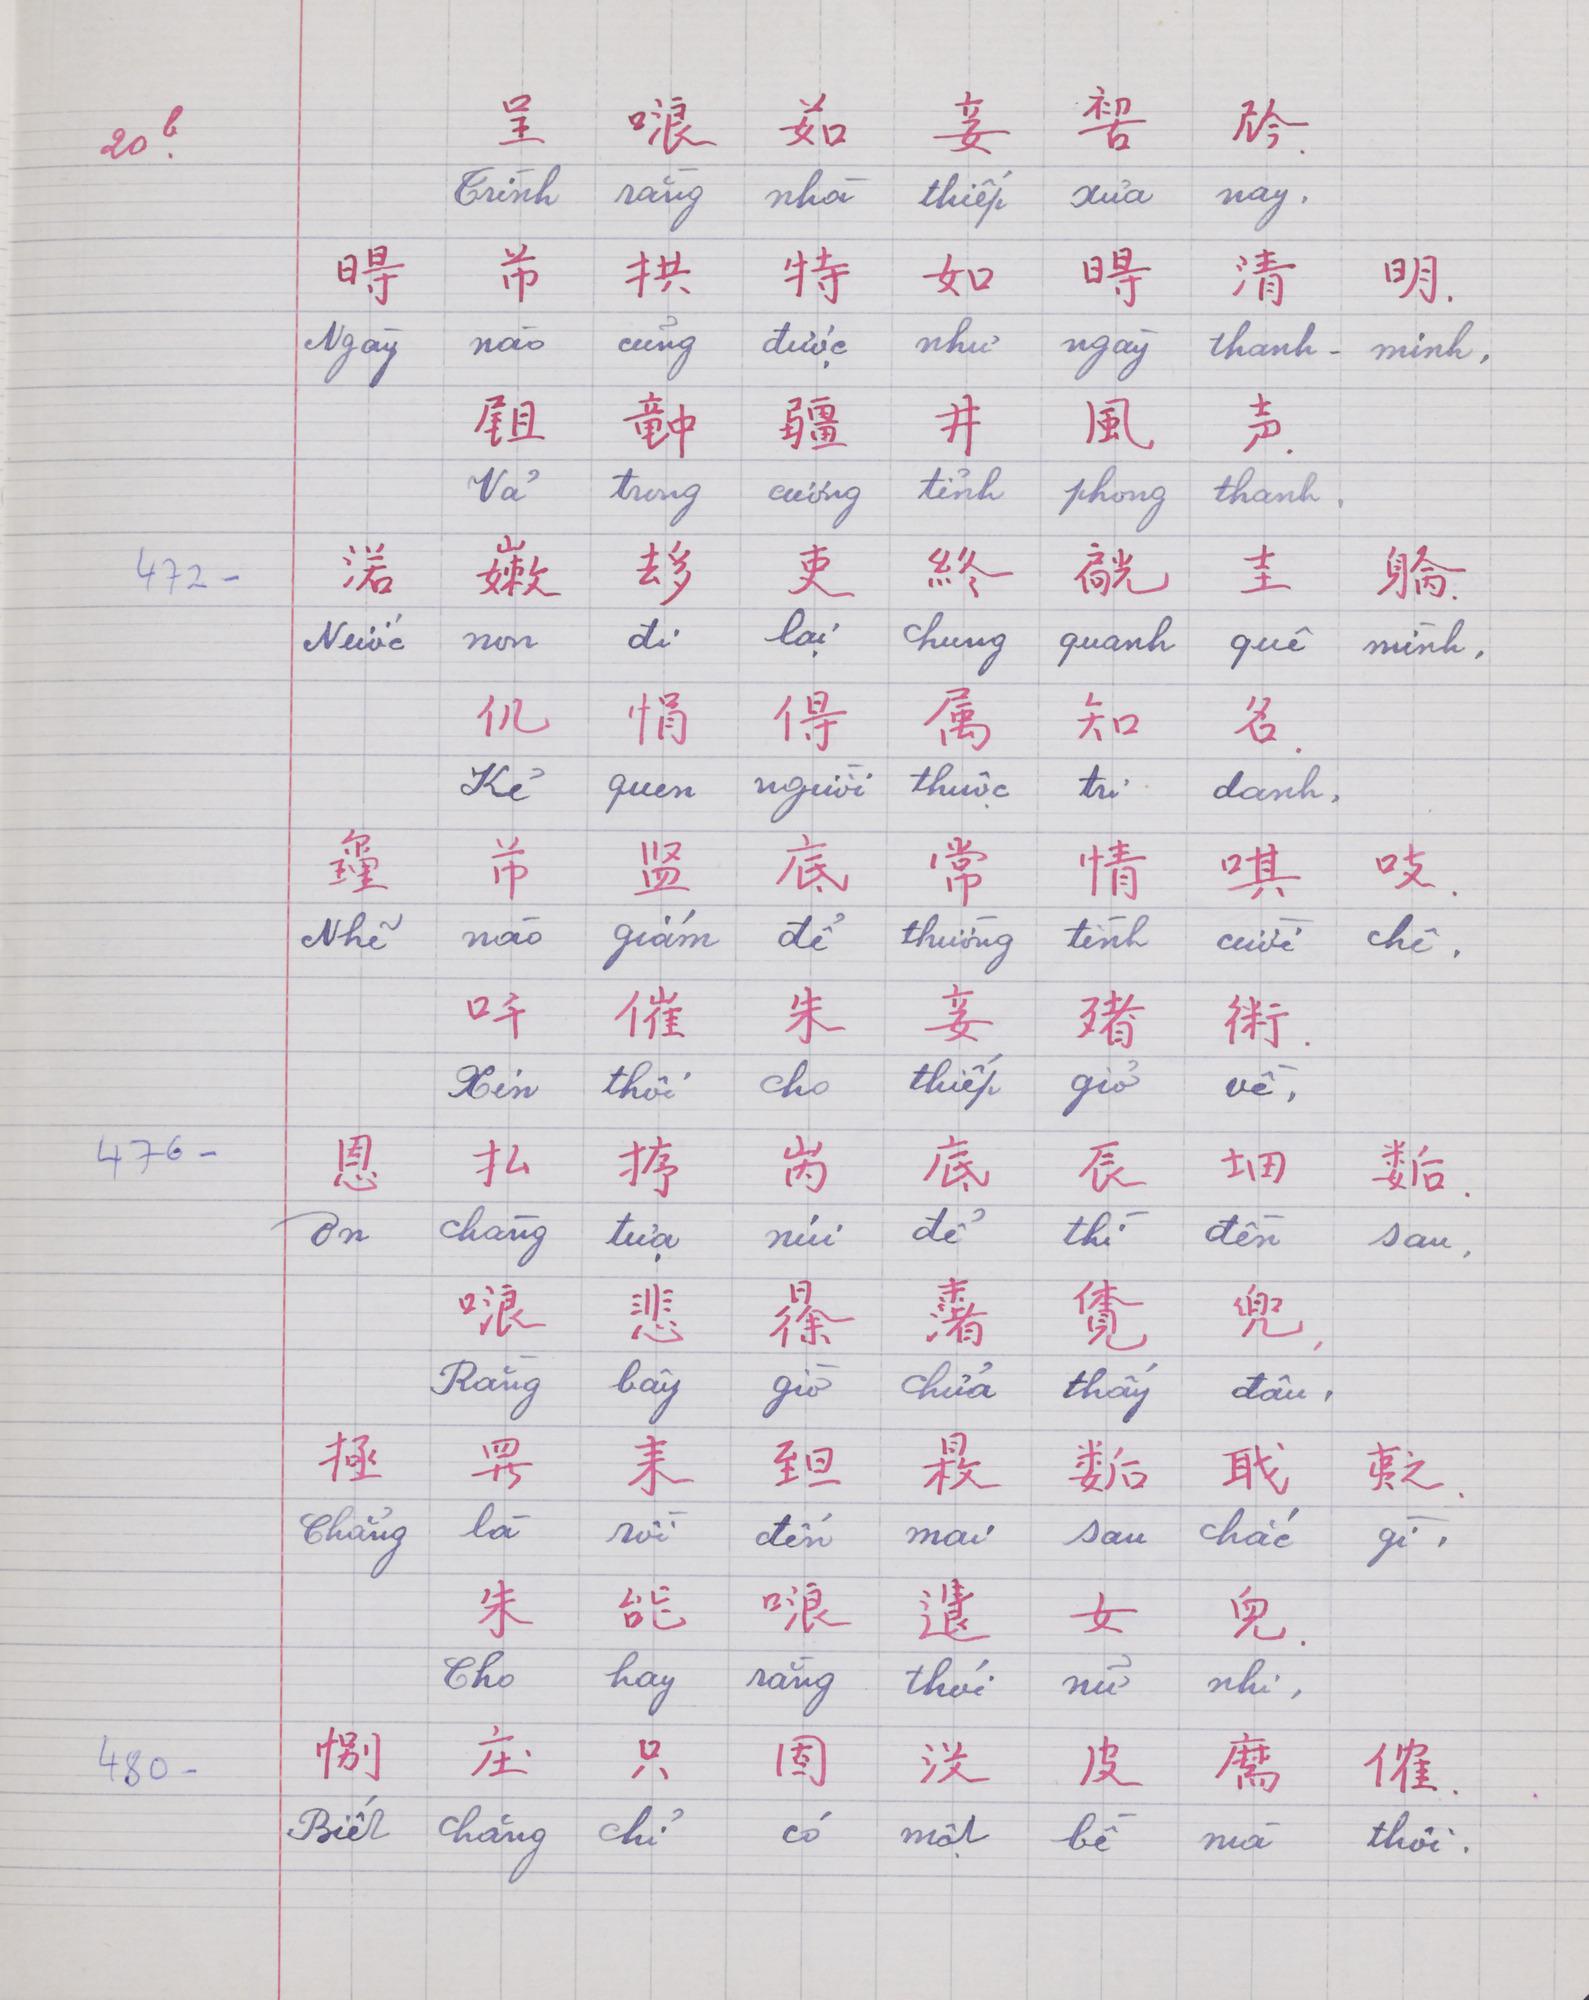 20b.
呈 哴 茹 妾 𠸗 𫢩.
Trình rằng nhà thiếp xưa nay,
𣈜 芇 拱 特 如 𣈜 清 明.
Ngày nào cũng được như ngày thanh-minh,
𡲤 𥪝 疆 井 風 声.
Vả trong cương tỉnh phong thanh,
472-
渃 𡽫 𠫾 吏 終 𨒺 圭 𨉟.
Nước non đi lại chung quanh quê mình,
仉 悁 得 属 知 名.
Kẻ quen người thuộc tri danh,
芇 𥌈 底 常 情 唭 吱.
Nhẽ nào giám để thường tình cười chê,
吀 催 朱 妾 𧗱.
Xin thôi cho thiếp giở về,
476-
恩 払 𢭸 𡶀 底 辰 𡊰 𡢐.
Ơn chàng tựa núi để thì đền sau,
哴 悲 𣇞 渚 𧡊 兜,
Rằng bây giờ chửa thấy đâu,
極 𱺵 耒 𦤾 𣈕 𡢐 聀 之.
Chẳng là rồi đến mai sau chắc gì,
朱 能 哴 退 女 兒.
Cho hay rằng thói nữ nhi,
480-
別 庄 只 固 沒 皮 麻 催.
Biết chăng chỉ có một bề mà thôi.